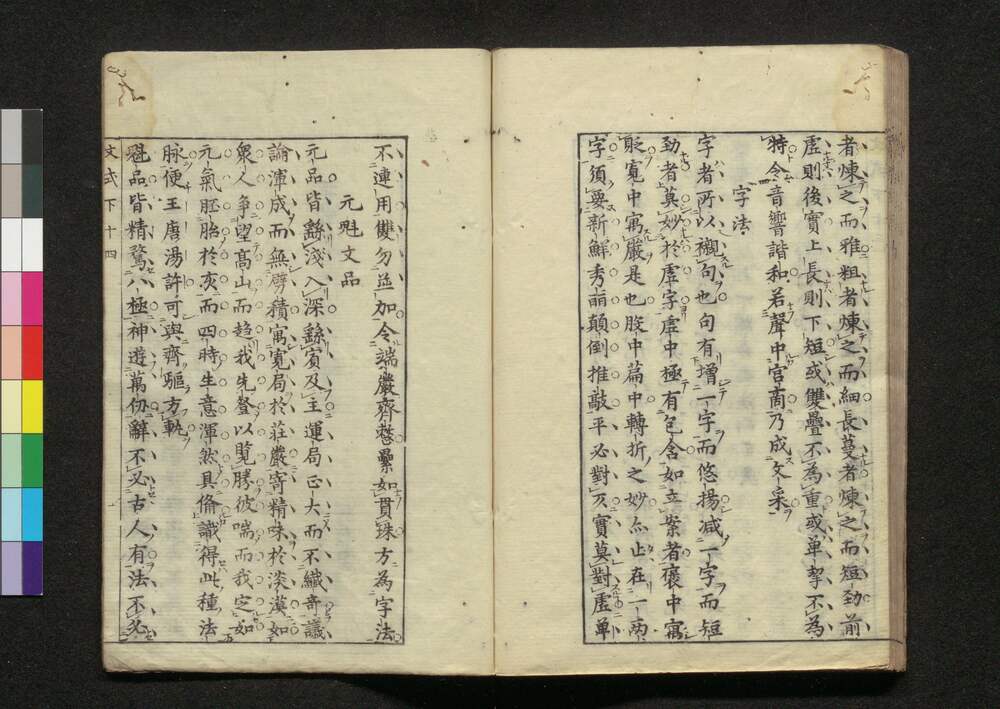 者煉之而雅粗者煉之而細長蔓者煉之而短勁前
虛則後實上長則下短或雙疊不為重或单挈不為
特令音響諧和若聲中宮商乃成文采
字法
字者所以襯句也句有增一字而悠揚减一字而短
勁者莫妙於虛字虛中極有包含如立案者褒中寓
貶寬中寓嚴是也股中篇中轉折之妙亦止在一兩
字須要新鮮秀丽顛倒推敲平必對仄實莫對虛单
不連用雙勿並加令端嚴齊整纍如貫珠方為字法
元魁文品
元品皆繇淺入深繇賓及主運局正大而不纖奇議
論渾成而無劈積寓寬局於莊嚴寄精味於淡漠如
衆人爭望高山而趋我先登以覽勝彼喘而我定如
元氣胚胎於亥而四時生意渾然具俻識得此種法
脉便王唐湯許可與齊驅方軌
魁品皆精騖八極神遊萬仞辭不必古人有法不必
文式下十四